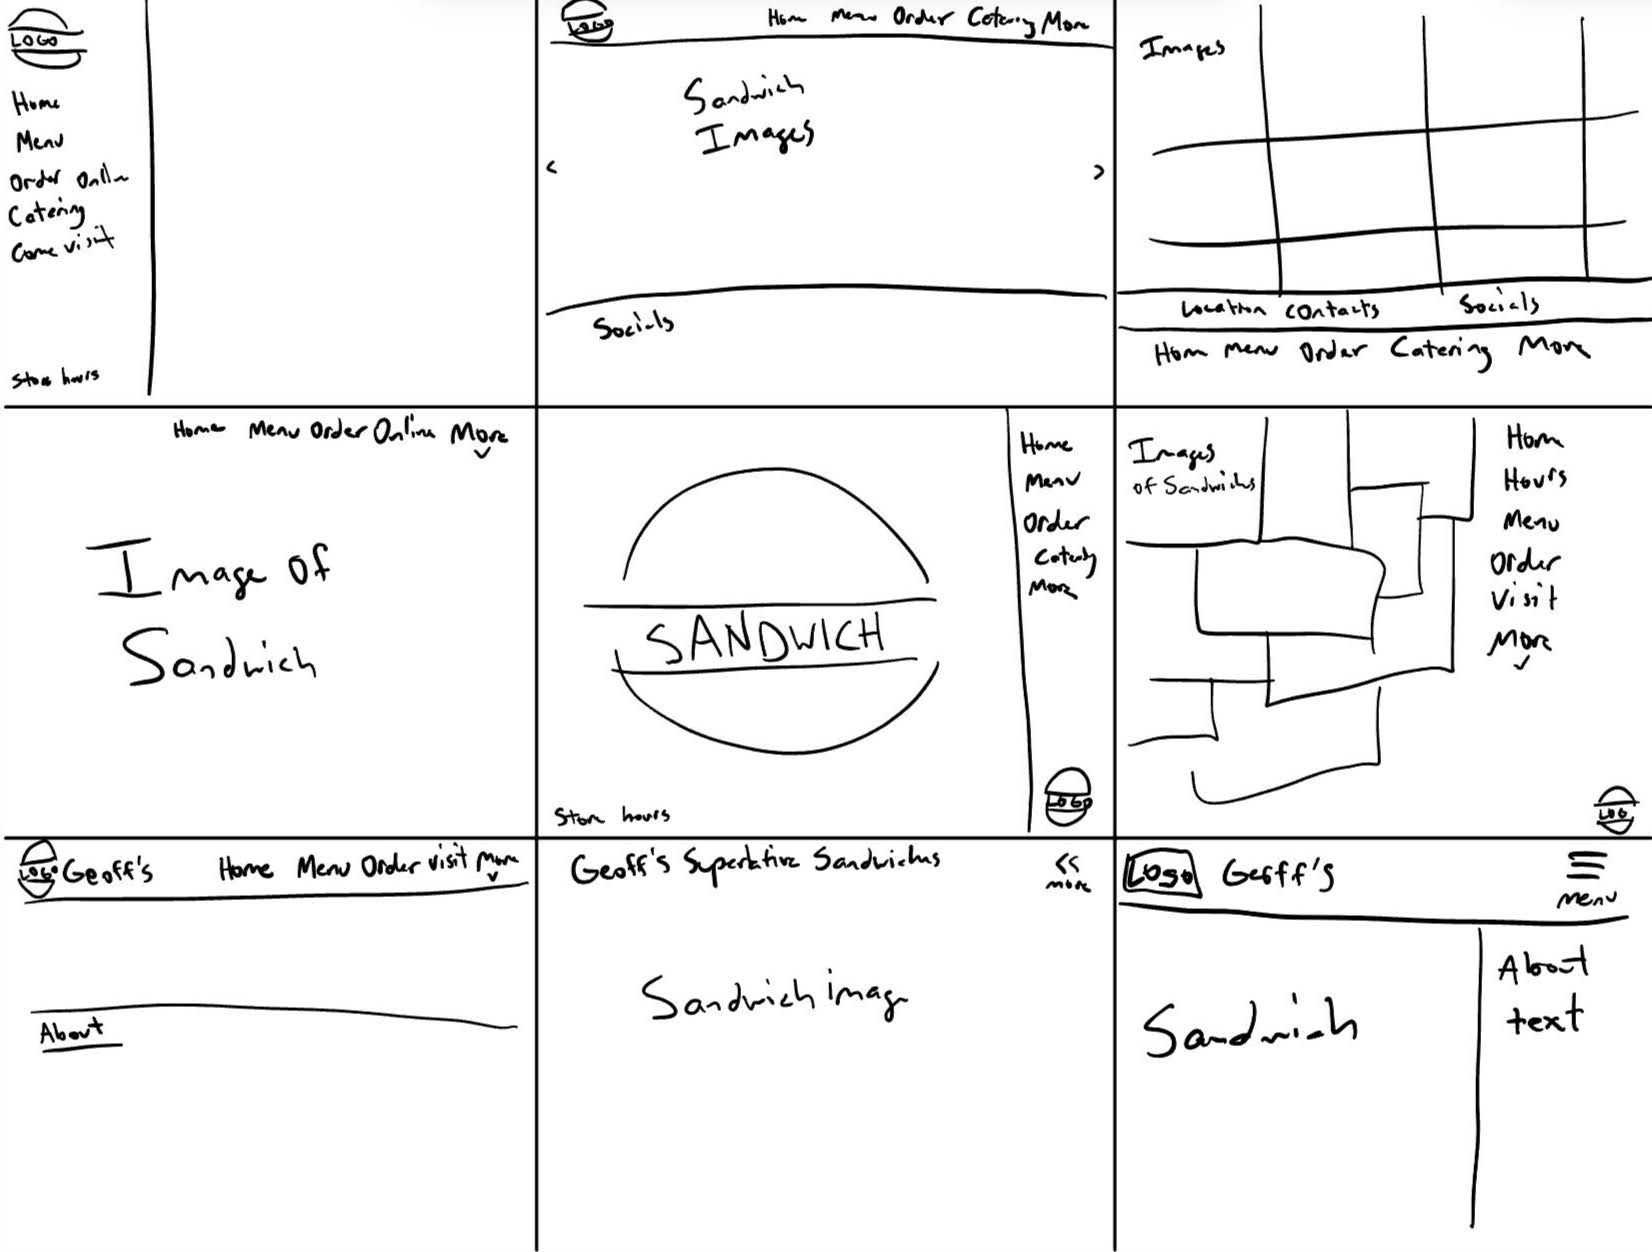 LOGO
Home
Menu
Order Online
Catering
Come visit
Store hours
LOGO
Home Menu Order Catering More
Sandwich
Images
<
>
Socials
Images
Location Contacts Socials
Home Menu Order Catering More
Home Menu Order Online More
Image of
Sandwich
SANDWICH
Store hours
Home
Menu
Order
Catering
More
LOGO
Images
of Sandwiches
Home
Hours
Menu
Order
Visit
More
LOGO
LOGO Geoff's Home Menu Order Visit More
About
Geoff's Superlative Sandwiches
<<
more
Sandwich image
Logo Geoff's
menu
Sandwich
About
text